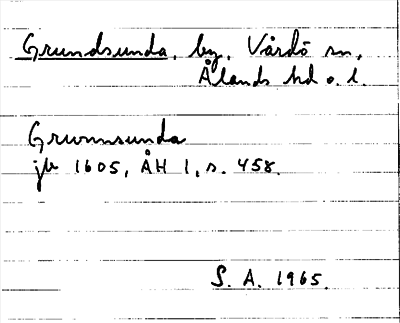 Grundsunda, by, Vårdö sn,
Ålands hd o. l.
Grwnnsunda
jb 1605, ÅH 1, s. 458.
S. A. 1965.